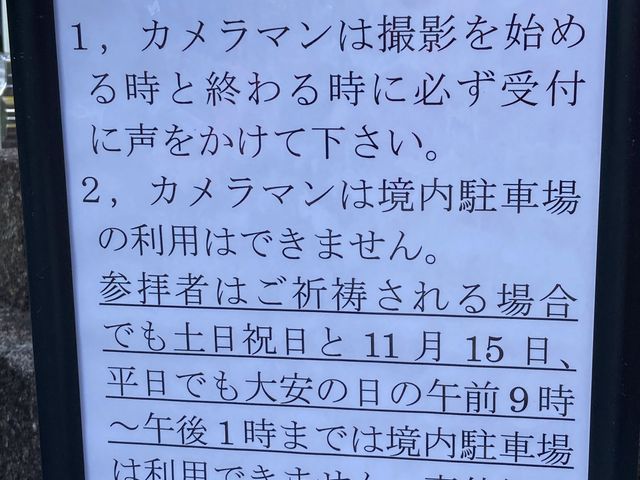 1，カメラマンは撮影を始め
る時と終わる時に必ず受付
に声をかけて下さい。
2，カメラマンは境内駐車場
の利用はできません。
参拝者はご祈祷される場合
でも土日祝日と11月15日、
平日でも大安の日の午前9時
～午後1時までは境内駐車場
は利用できません